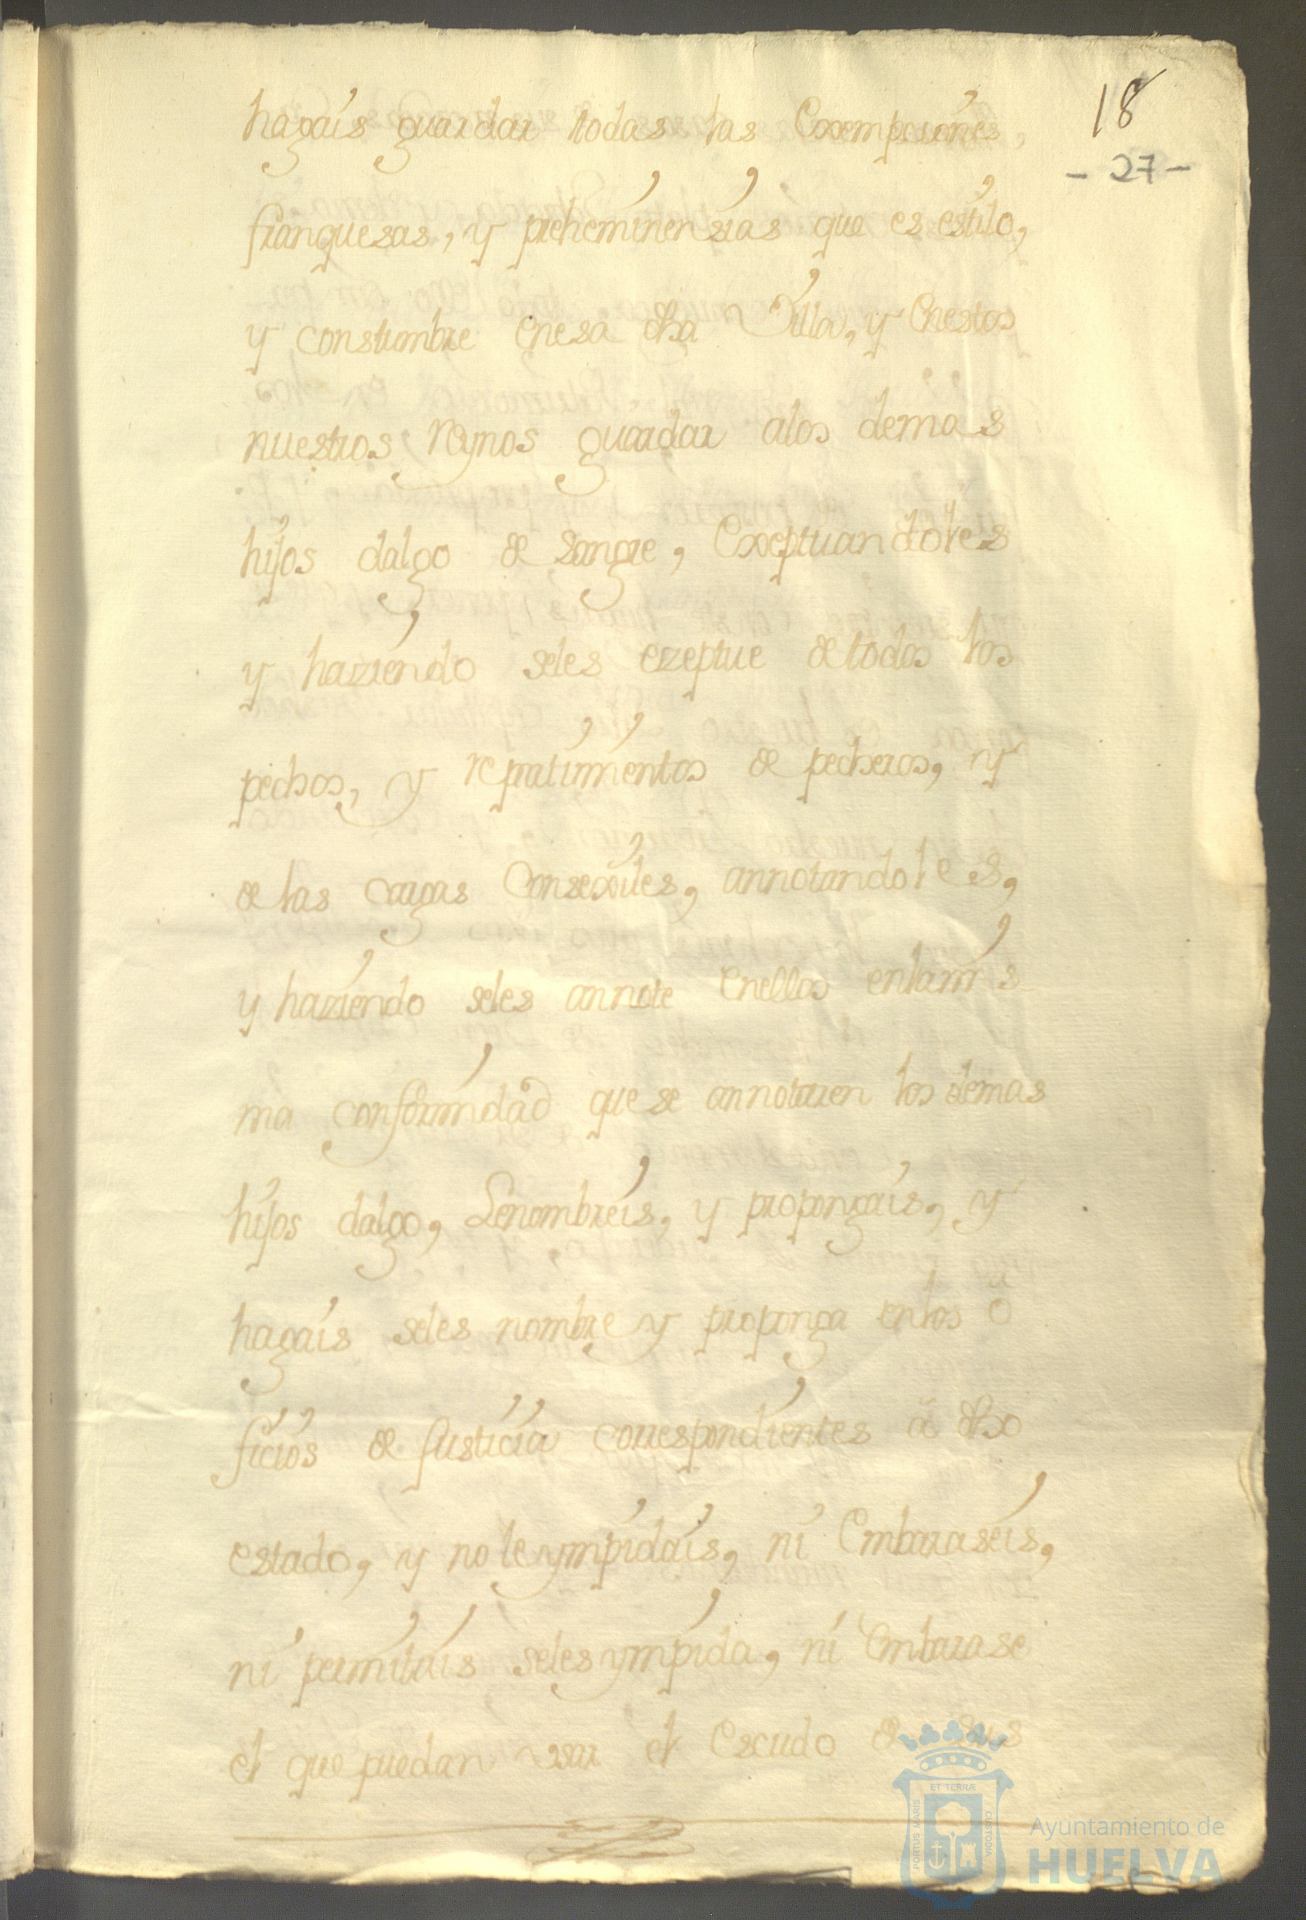 18
- 27 -
hagaís guardar todas las Exempciónes,
franquesas, y preheminensías que es estilo,
y constumbre enesa dha Villa, y Enestos
nuestros Reynos guardar alos demas
hijos dalgo de sangre, Exeptuandoles
y haziendo seles ezeptue de todos los
pechos, y repratimientos de pecheros, y
de las cargas Consegiles, annotandoles,
y haziendo seles annote Enellos enlamis-
ma conformidad que se annotaren los demas
hijos dalgo, Lenombreis, y propongaís, y
hagaís seles nombre y proponga enlos o
ficios de Justicia correspondientes á dho
estado, y no le ympidaís, ni Embaraseis,
ni permitaís seles ympida, ni Embarase
el que puedan usar el Escudo de sus
PORTUS MARIS ET TERRÆ CUSTODIA
Ayuntamiento de
HUELVA